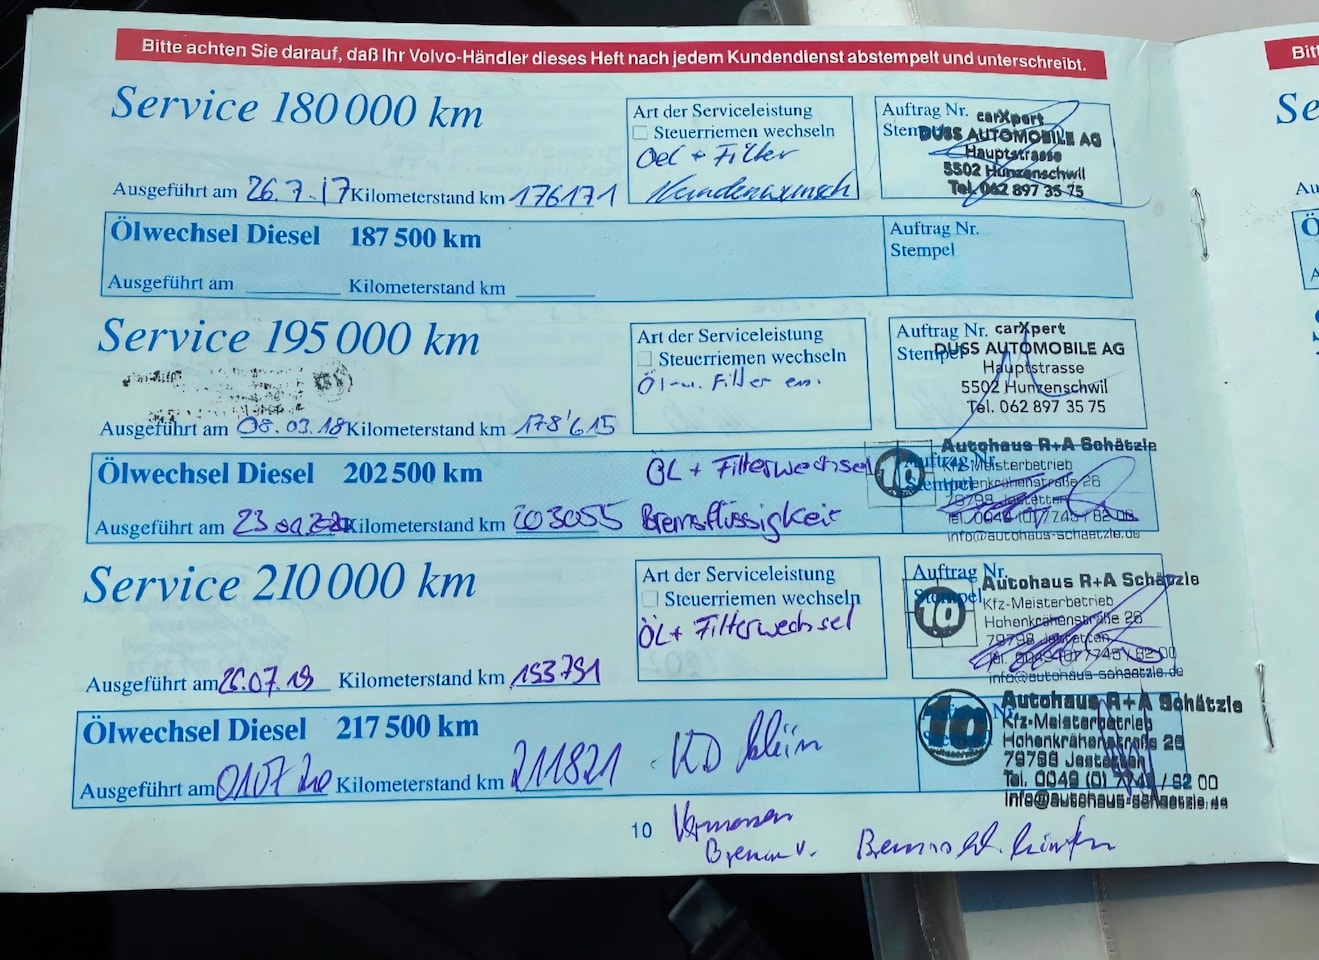 Bitte achten Sie darauf, daß Ihr Volvo-Händler dieses Heft nach jedem Kundendienst abstempelt und unterschreibt.
Bitt
Service 180 000 km
Art der Serviceleistung
Steuerriemen wechseln
Oel + Filter
Kundenwunsch
Auftrag Nr.
Stempel
carXpert
DUSS AUTOMOBILE AG
Hauptstrasse
5502 Hunzenschwil
Tel. 062 897 35 75
Ausgeführt am 26.7.17 Kilometerstand km 176171
Ölwechsel Diesel 187 500 km
Auftrag Nr.
Stempel
Ausgeführt am Kilometerstand km
Service 195 000 km
Art der Serviceleistung
Steuerriemen wechseln
Öl-u. Filter
Auftrag Nr.
Stempel
carXpert
DUSS AUTOMOBILE AG
Hauptstrasse
5502 Hunzenschwil
Tel. 062 897 35 75
Ausgeführt am 08.03.18 Kilometerstand km 178'615
Ölwechsel Diesel 202 500 km
ÖL + Filterwechsel
Bremsflüssigkeit
Auftrag Nr.
Stempel
10
Autohaus R+A Schätzle
Kfz-Meisterbetrieb
Hohenkrähenstraße 26
79798 Jestetten
Tel. 0049 (0) 7745 / 82 00
info@autohaus-schaetzle.de
Ausgeführt am 23 Kilometerstand km 203055
Service 210 000 km
Art der Serviceleistung
Steuerriemen wechseln
ÖL + Filterwechsel
Auftrag Nr.
Stempel
10
Autohaus R+A Schätzle
Kfz-Meisterbetrieb
Hohenkrähenstraße 26
79798 Jestetten
Tel. 0049 (0) 7745 / 82 00
info@autohaus-schaetzle.de
Ausgeführt am 26.07.19 Kilometerstand km 193791
Ölwechsel Diesel 217 500 km
KD klein
10
Autohaus R+A Schätzle
Kfz-Meisterbetrieb
Hohenkrähenstraße 26
79798 Jestetten
Tel. 0049 (0) 7745 / 82 00
info@autohaus-schaetzle.de
Ausgeführt am 0107 20 Kilometerstand km 211821
10
Se
Au